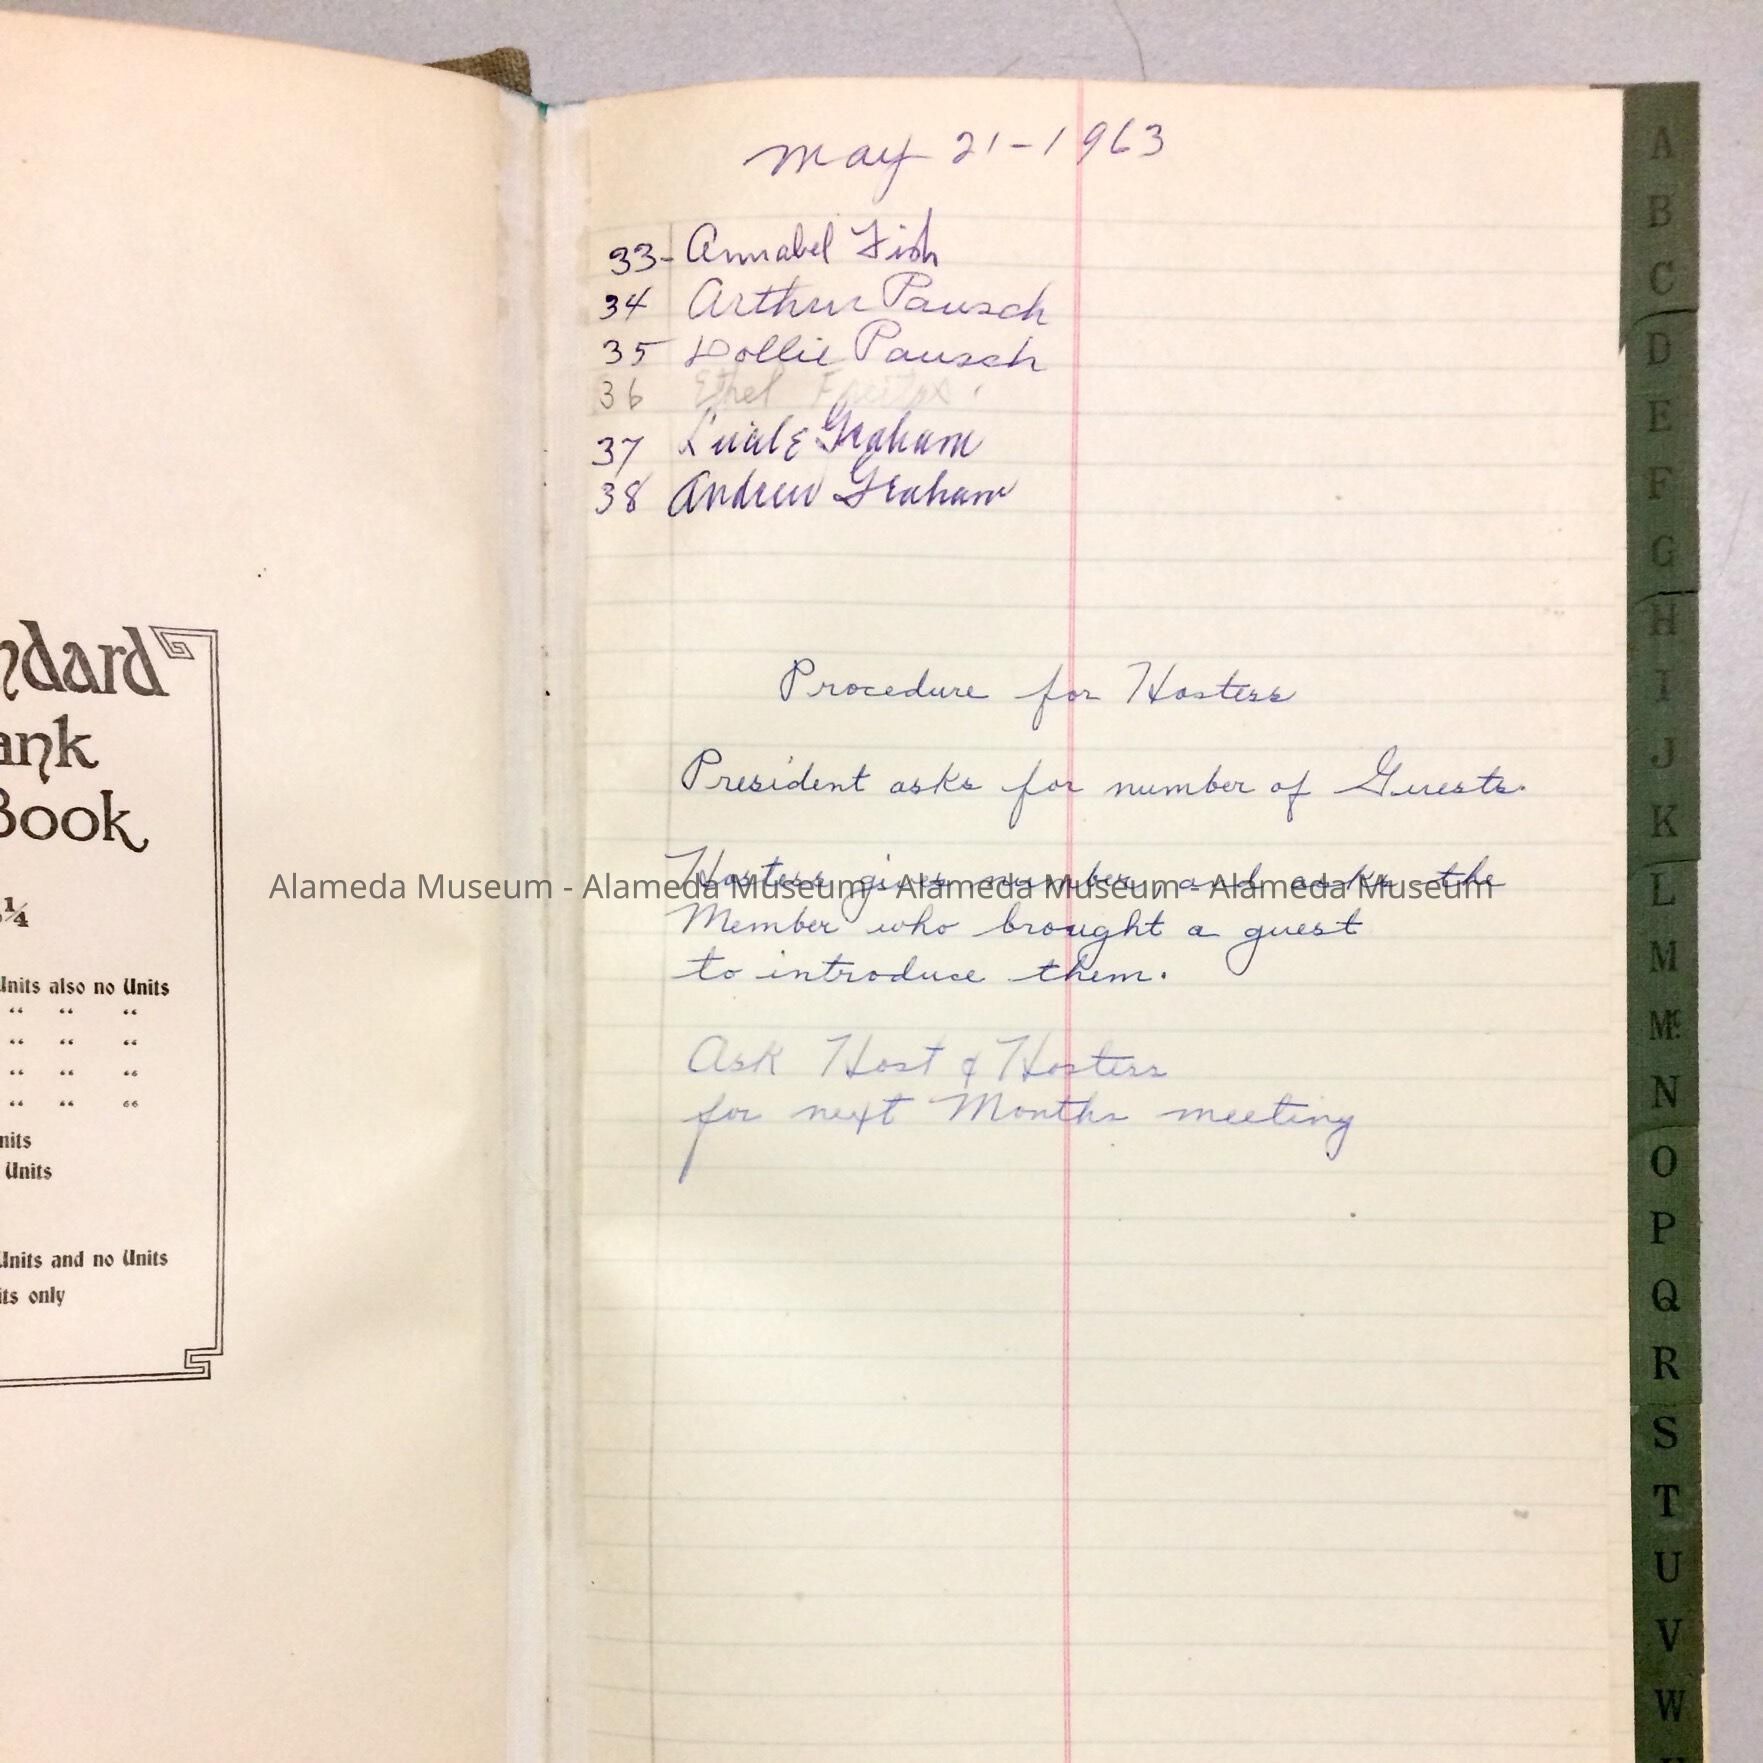 ndard
ank
Book
¼
Units also no Units
“ “ “
“ “ “
“ “ “
“ “ “
nits
Units
Units and no Units
its only
May 21-1963
33- Annabel Fish
34 Arthur Pausch
35 Dollie Pausch
36 Ethel Freitas.
37 Lucile Graham
38 Andrew Graham
Procedure for Hostess
President asks for number of Guests.
Hostess gives number, and asks the
Member who brought a guest
to introduce them.
Ask Host & Hostess
for next Months meeting
Alameda Museum - Alameda Museum - Alameda Museum - Alameda Museum
A
B
C
D
E
F
G
H
I
J
K
L
M
Mc
N
O
P
Q
R
S
T
U
V
W